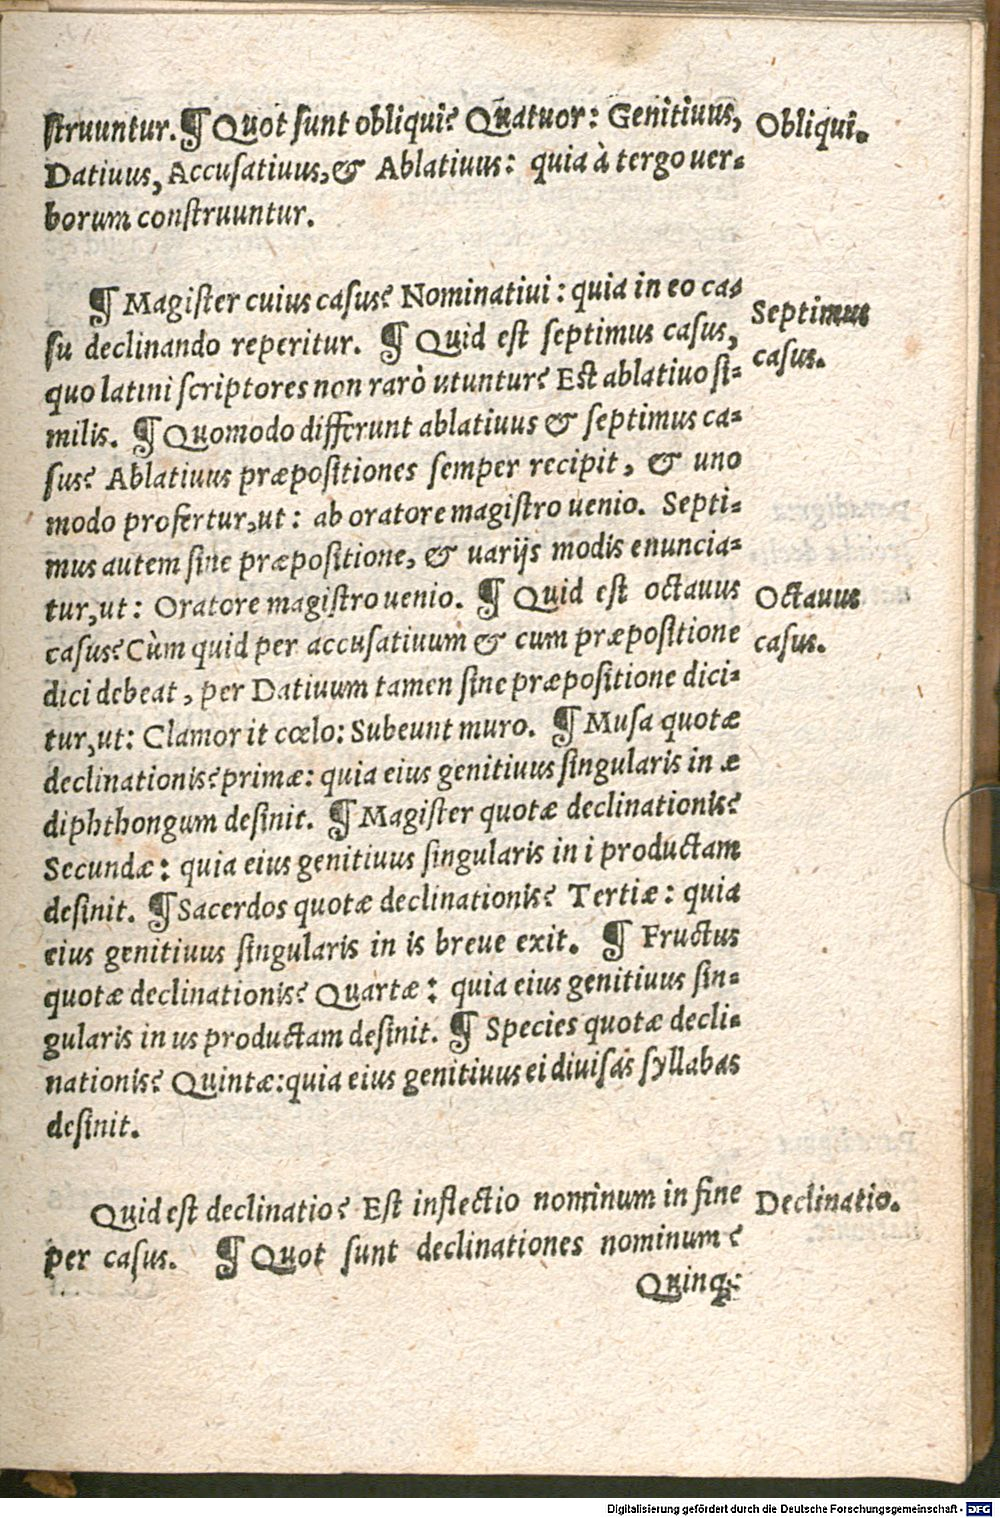 ſtruuntur. ¶ Quot ſunt obliqui? Quatuor: Genitiuus,
Obliqui.
Datiuus, Accuſatiuus, & Ablatiuus: quia à tergo uer-
borum conſtruuntur.
¶ Magiſter cuius caſus? Nominatiui: quia in eo ca-
Septimus
ſu declinando reperitur. ¶ Quid eſt ſeptimus caſus,
caſus.
quo latini ſcriptores non rarò utuntur? Eſt ablatiuo ſi-
milis. ¶ Quomodo differunt ablatiuus & ſeptimus ca-
ſus? Ablatiuus præpoſitiones ſemper recipit, & uno
modo profertur, ut: ab oratore magiſtro uenio. Septi-
mus autem ſine præpoſitione, & uarijs modis enuncia-
tur, ut: Oratore magiſtro uenio. ¶ Quid eſt octauus
Octauus
caſus? Cùm quid per accuſatiuum & cum præpoſitione
caſus.
dici debeat, per Datiuum tamen ſine præpoſitione dici-
tur, ut: Clamor it cœlo: Subeunt muro. ¶ Muſa quotæ
declinationis? primæ: quia eius genitiuus ſingularis in æ
diphthongum deſinit. ¶ Magiſter quotæ declinationis?
Secundæ: quia eius genitiuus ſingularis in i productam
deſinit. ¶ Sacerdos quotæ declinationis? Tertiæ: quia
eius genitiuus ſingularis in is breue exit. ¶ Fructus
quotæ declinationis? Quartæ: quia eius genitiuus ſin-
gularis in us productam deſinit. ¶ Species quotæ decli-
nationis? Quintæ: quia eius genitiuus ei diuiſas ſyllabas
deſinit.
Quid eſt declinatio? Eſt inflectio nominum in fine
Declinatio.
per caſus. ¶ Quot ſunt declinationes nominum?
Quinq;
Digitalisierung gefördert durch die Deutsche Forschungsgemeinschaft - DFG